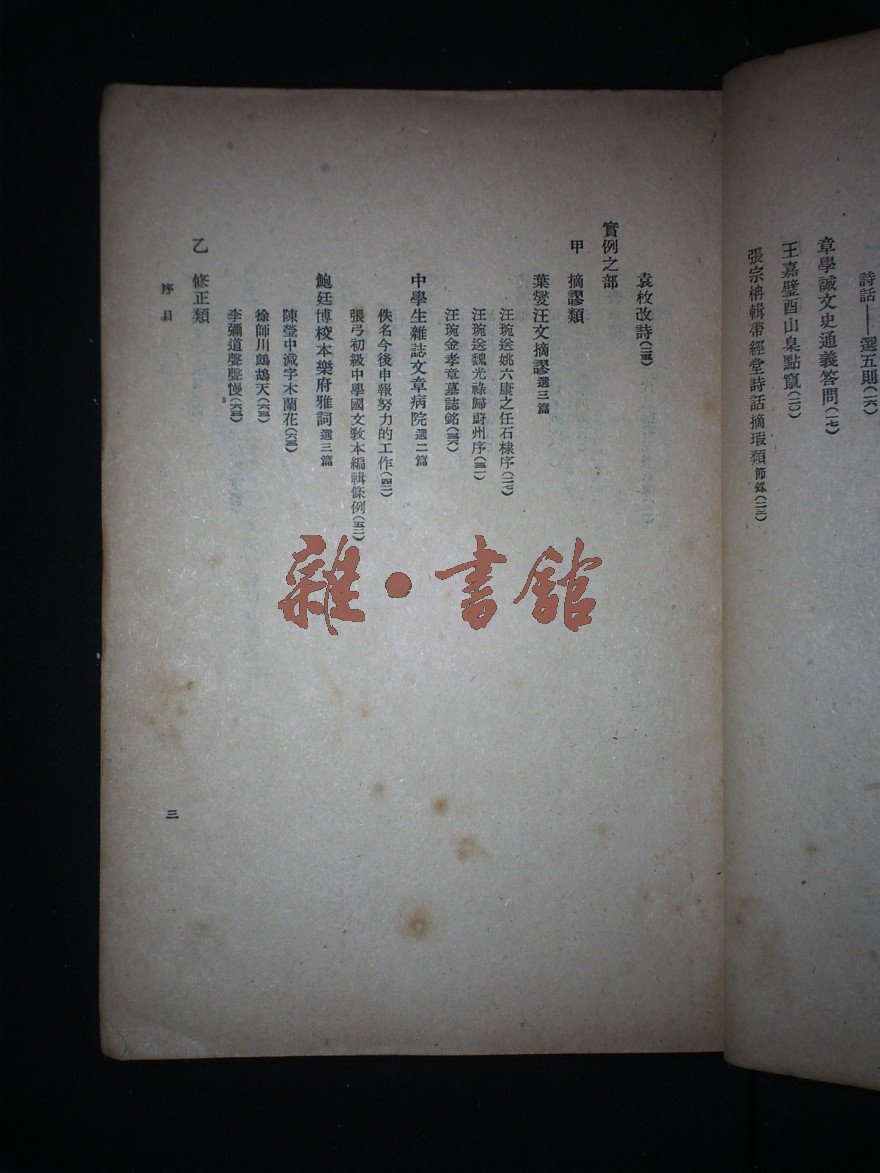 詩話——選五則(一六)
章學誠文史通義答問(一七)
王嘉璧酉山臬點竄(二〇)
張宗柟輯帶經堂詩話摘瑕類節錄(二三)
袁枚改詩(二四)
實例之部
甲 摘謬類
葉燮汪文摘謬選三篇
汪琬送姚六康之任石棣序(二七)
汪琬送魏光祿歸蔚州序(三一)
汪琬金孝章墓誌銘(三六)
中學生雜誌文章病院選二篇
佚名今後申報努力的工作(四二)
張弓初級中學國文敎本編輯條例(五二)
鮑廷博校本樂府雅詞選三篇
陳瑩中減字木蘭花(六三)
徐師川鷓鴣天(六三)
李彌遠聲聲慢(六三)
乙 修正類
序目
三
雜·書館